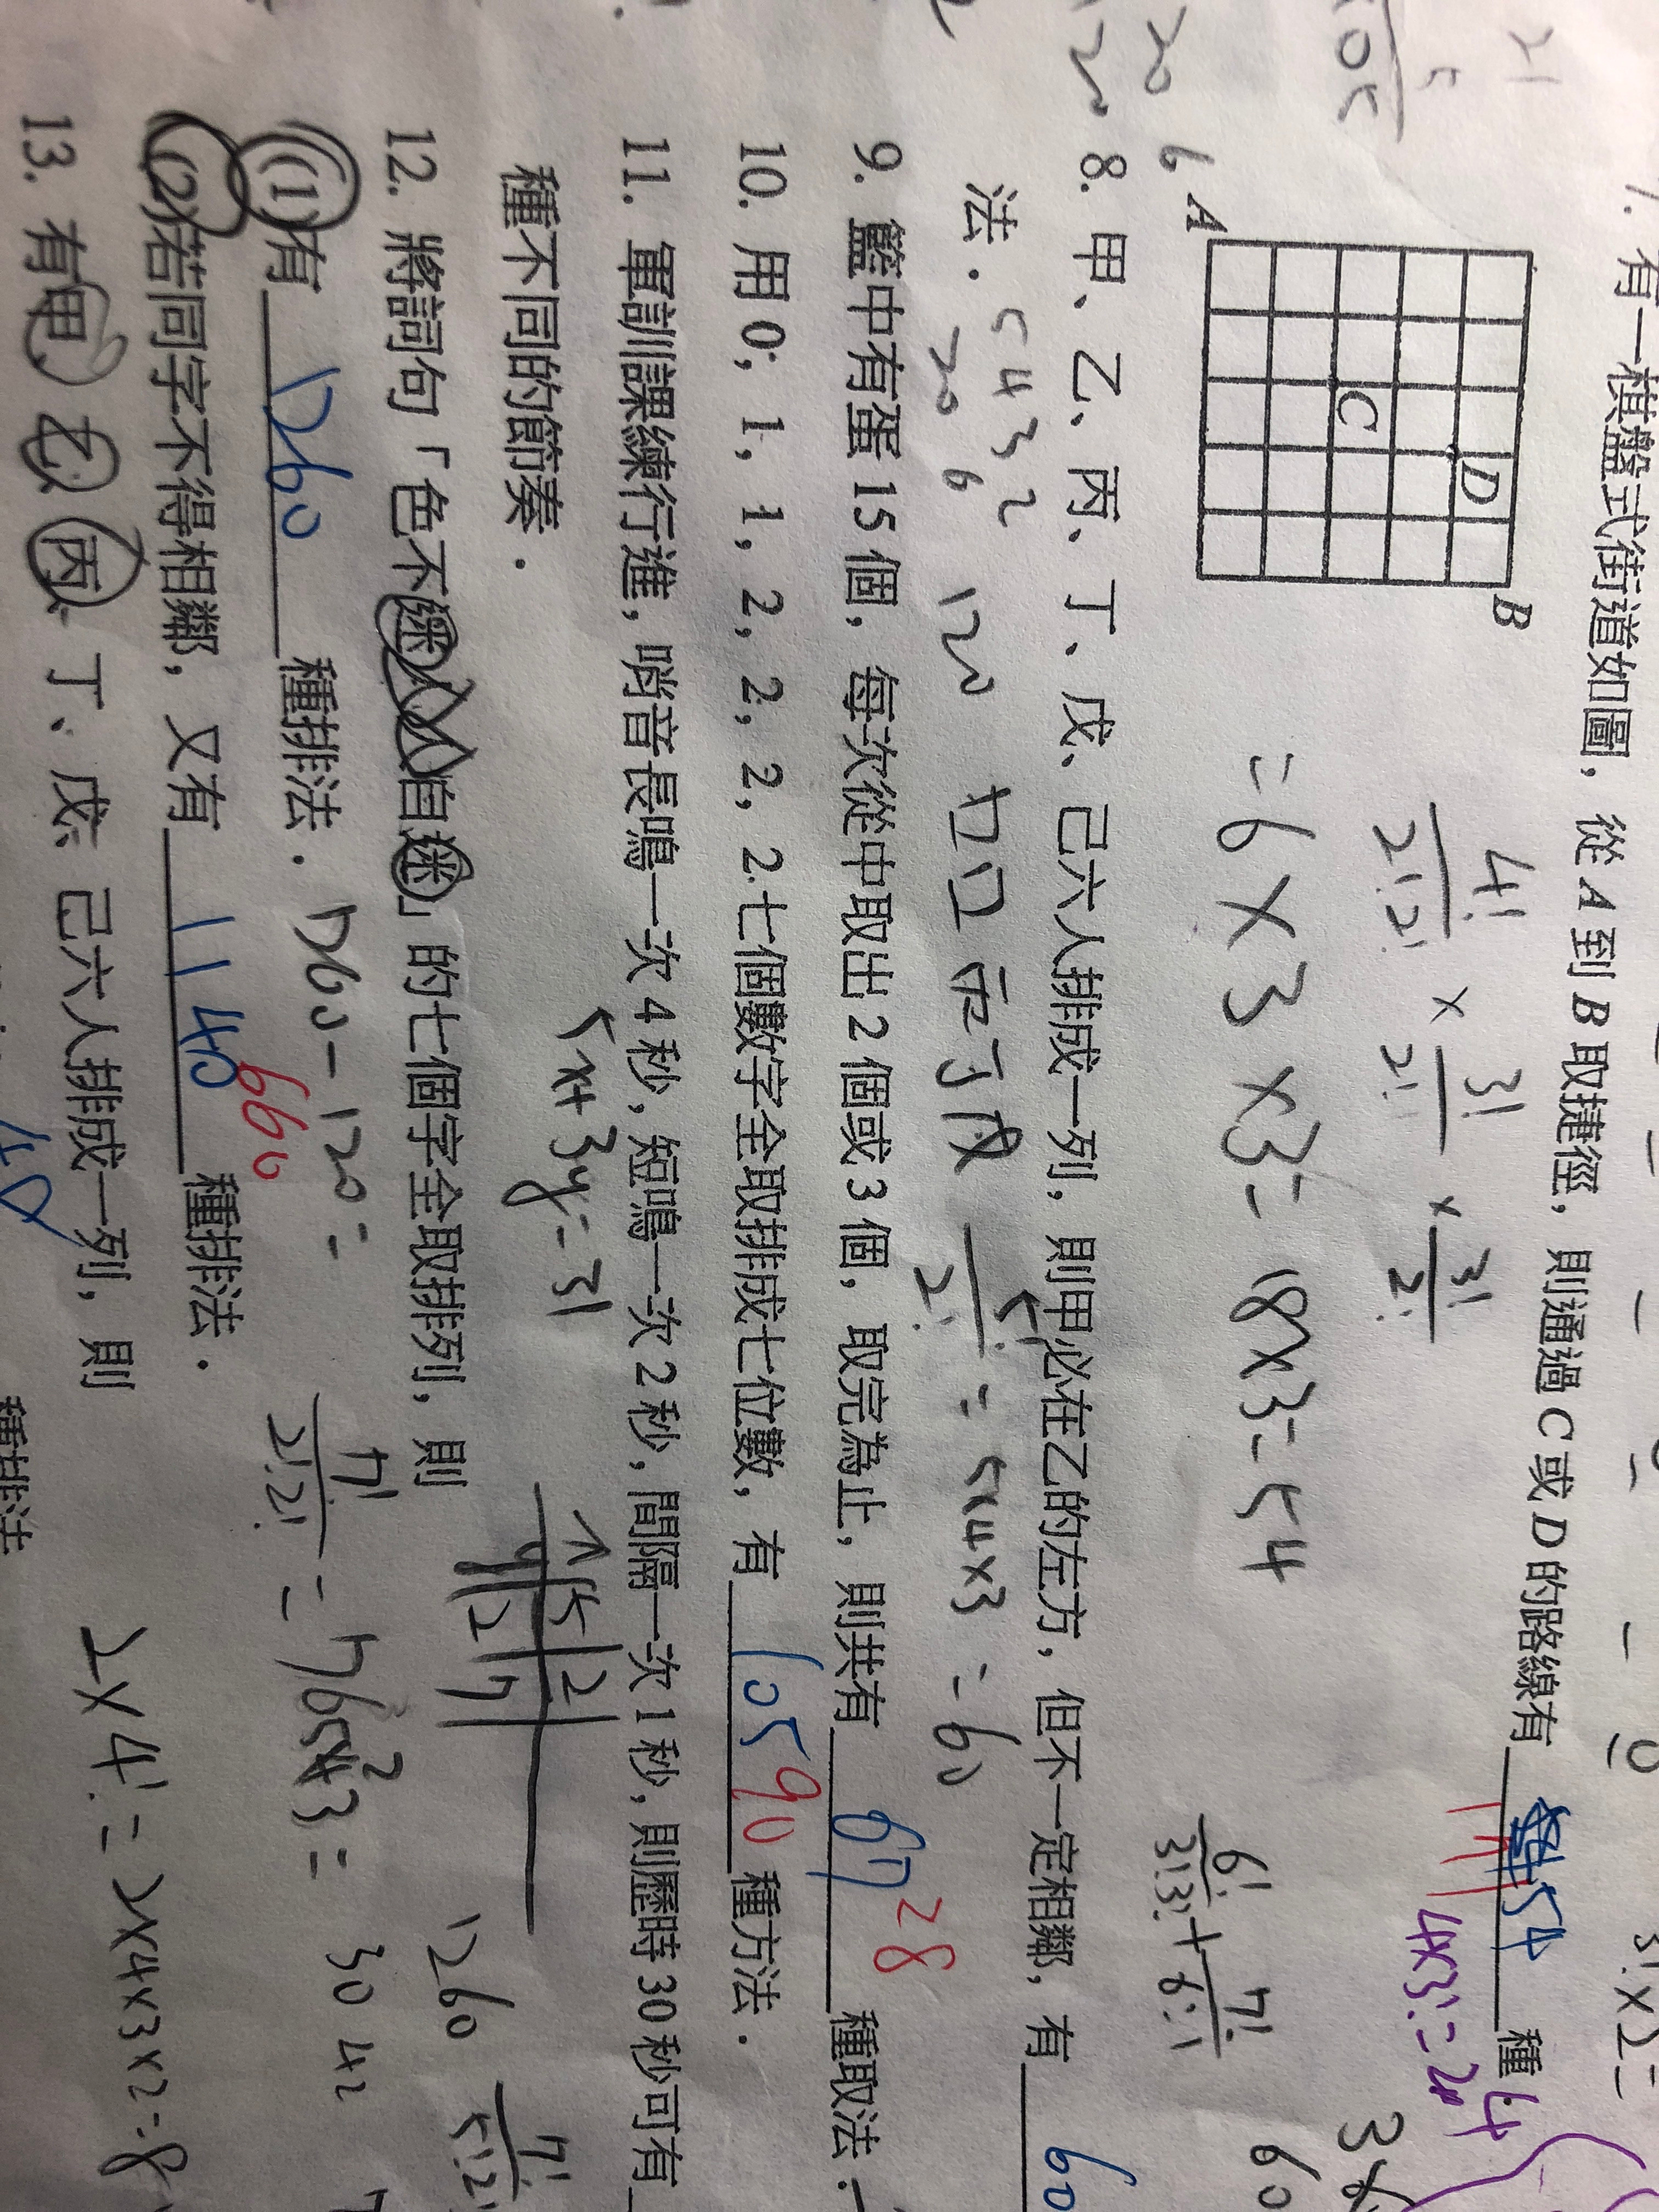 7. 有一棋盤式街道如圖，從 A 到 B 取捷徑，則通過 C 或 D 的路線有 54 種
A
B
C
D
4!/2!2! × 3!/2! × 3!/2!
=6×3×3=18×3=54
4×3!=24
8. 甲、乙、丙、丁、戊、己六人排成一列，則甲必在乙的左方，但不一定相鄰，有 60
法．
5 4 3 2
20 6 120
5!/2! = 5×4×3 = 60
9. 籃中有蛋 15 個，每次從中取出 2 個或 3 個，取完為止，則共有 67 28 種取法．
10. 用 0，1，1，2，2，2，2 七個數字全取排成七位數，有 105 90 種方法．
11. 軍訓課練行進，哨音長鳴一次 4 秒，短鳴一次 2 秒，間隔一次 1 秒，則歷時 30 秒可有
種不同的節奏．
5x+3y=31
x 5 2
y 2 7
12. 將詞句「色不迷人人自迷」的七個字全取排列，則
(1)有 1260 種排法．
1260-120=
7!/2!2! =
1260
(2)若同字不得相鄰，又有 1140 660 種排法．
13. 有甲、乙、丙、丁、戊、己六人排成一列，則
2×4!=2×4×3×2=8
種排法